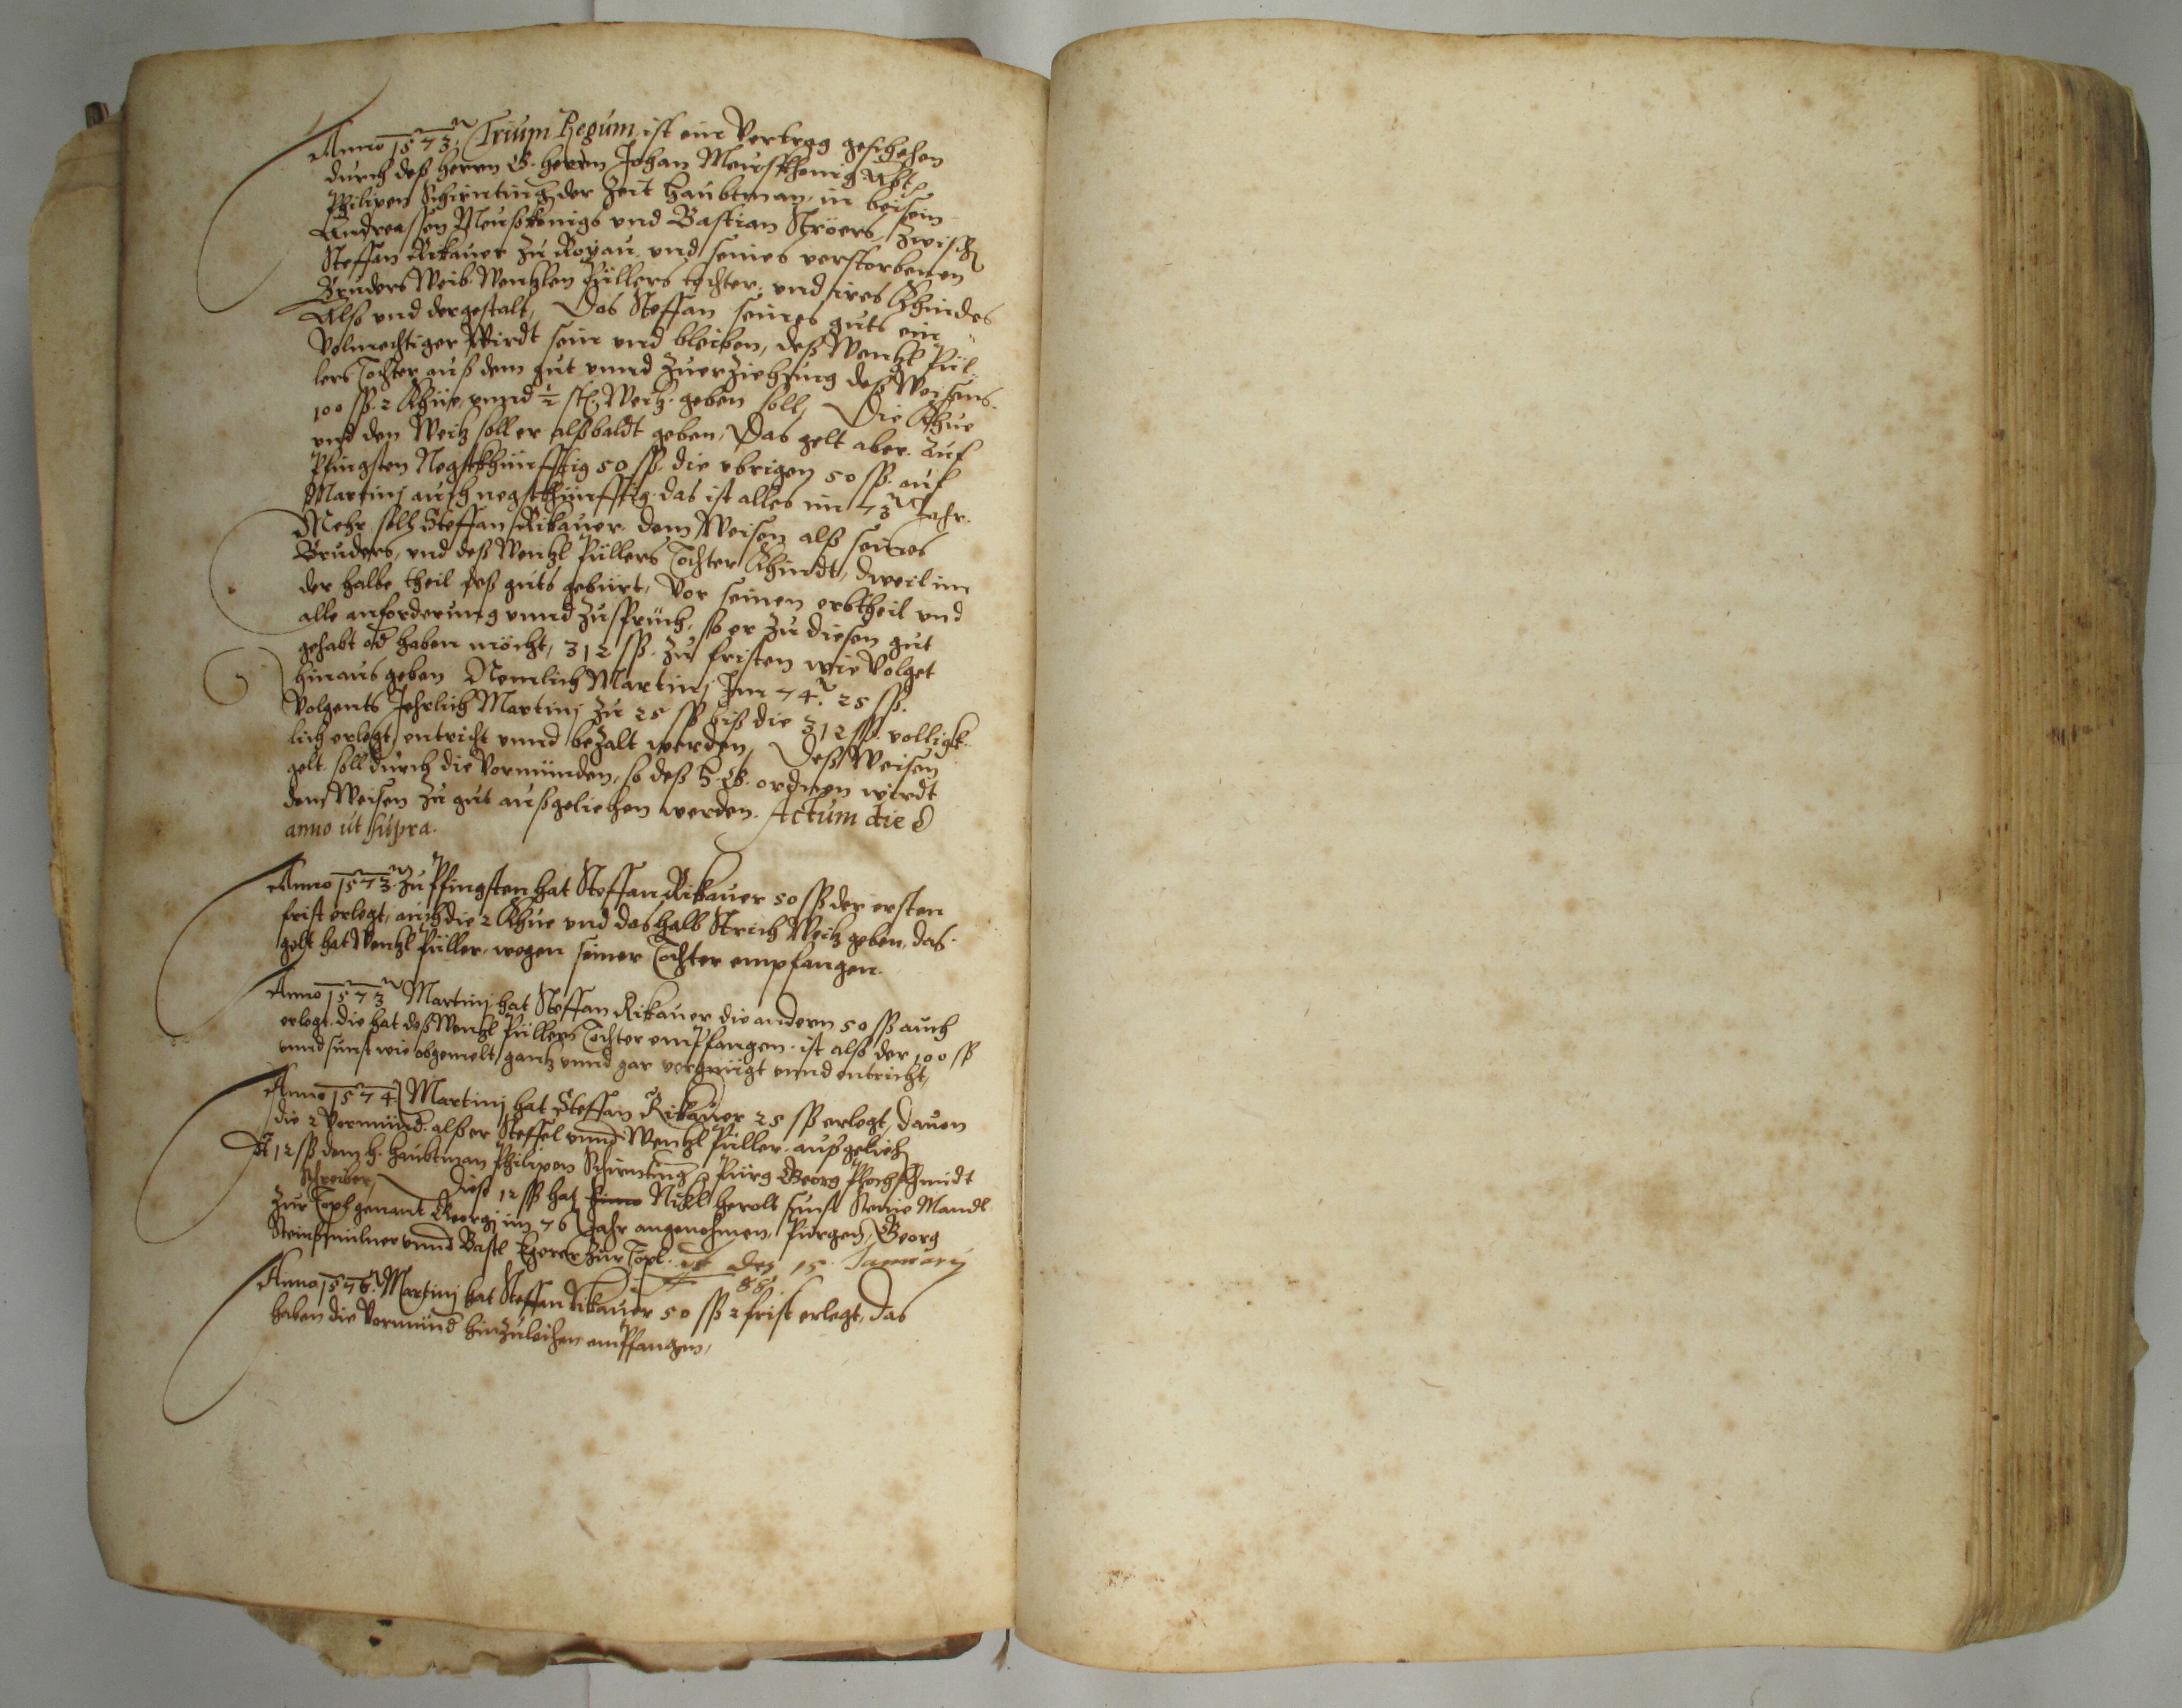 Anno 1573. Trium Regum ist ein Vertrag geschehen
durch deß herrn G. herrn Johan Meuskhenig Abt,
Philipen Schirnting der Zeit Haubtman, in beisein
Andreassen Meußkönigs vnd Bastian Ströers, Zwisch
Steffan Rikauer zu Royau, vnd seines verstorbenen
Bruders Weib Wentzlen Püllers tochter, vnd ires Khindes
Alß vnd dergestalt, Das Steffan seines guts ein
Volmechtiger Wirdt sein vnd bleiben, deß Wentzl Pül-
lers Tochter auß dem gut vnnd Zuerziehung deß Weisens
100 ſß. 2 Khüe, vnnd ½ st. Weitz geben soll, Die Khue
vnd den Weitz soll er alßbaldt geben, Das gelt aber auf
Pfingsten Negstkhünfftig 50 ſß. die vbrigen 50 ſß. auf
Martinj auch negstkhünfftig. das ist alles im 73 Jahr.
Mehr soll Steffan Rikauer dem Weisen alß seines
Bruders, vnd deß Wentzl Püllers Tochter Khindt, dweil im
der halbe theil deß guts gebürt, Vor seinen erbtheil vnd
alle anforderung vnnd Zuspruch, so er Zu diesen gut
gehabt od haben möcht, 312 ſß. Zu fristen wie Volget
hinaus geben Nemlich Martinj Im 74. 25 ſß.
Volgents Jehrlich Martinj Zu 25 ſß biß die 312 ſß. vollig-
lich erlegt, entricht vnnd bezalt werden, Deß Weisen
gelt soll durch die Vormünden, so deß H. G. ordnen wirdt
dem Weisen Zu gut außgeliehen werden. Actum die &
anno ut supra.
Anno 1573. Zu Pfingsten hat Steffan Rikauer 50 ſß der ersten
frist erlegt, auch die 2 Khue vnd das halb Strich Weitz geben, das
gelt hat Wentzl Püller, wegen seiner Tochter empfangen.
Anno 1573 Martinj hat Steffan Rikauer die andern 50 ſß auch
erlegt. die hat deß Wentzl Püllers Tochter empfangen. ist alß der 100 ſß
vnnd sunst wie obgemelt, gantz vnnd gar vergnügt vnnd entricht,
Anno 1574. Martinj hat Steffan Rikauer 25 ſß erlegt, dauon
die 2 Vormünd. alß er Steffel vnnd Wentzl Püller. außgelieh
12 ſß dem h. haubtman Philipen Schirnting, Pürg Georg Plochschmidt
Schreiber, Diese 12 ſß hat Nickl herolt sunst Mandl
Zur Töpl genant Georgj im 76 Jahr angenohmen, Pürgen, Georg
Steinßmilner vnnd Bastl Zur Töpl. den 15 January
88.
Anno 1576. Martinj hat Steffan Rikauer 50 ſß 2 frist erlegt, das
haben die Vormünd hinzuleihen empfangen,